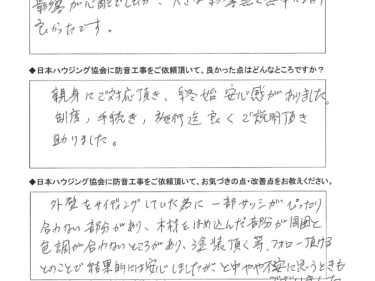 良かったです。
◆日本ハウジング協会に防音工事をご依頼頂いて、良かった点はどんなところですか？
親身にご対応頂き、終始安心感がありました。
制度，手続き，施行迄良くご説明頂き
助かりました。
◆日本ハウジング協会に防音工事をご依頼頂いて、お気づきの点・改善点をお教えください。
外壁をサイディングしていた為に一部サッシがぴったり
合わない部分があり、木材をはめ込んだ部分が周囲と
色調が合わないところがあり、塗装頂く等、フォロー頂ける
とのことで結果的には安心しましたが途中やや不安に思うときも